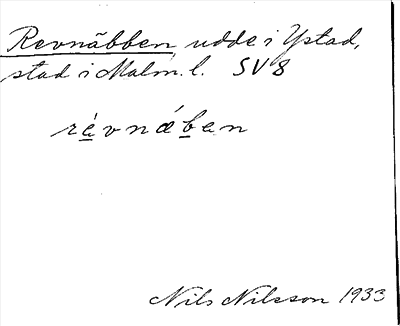 Revnäbben, udde i Ystad,
stad i Malm. l. SV 8
rèvnáben
Nils Nilsson 1933